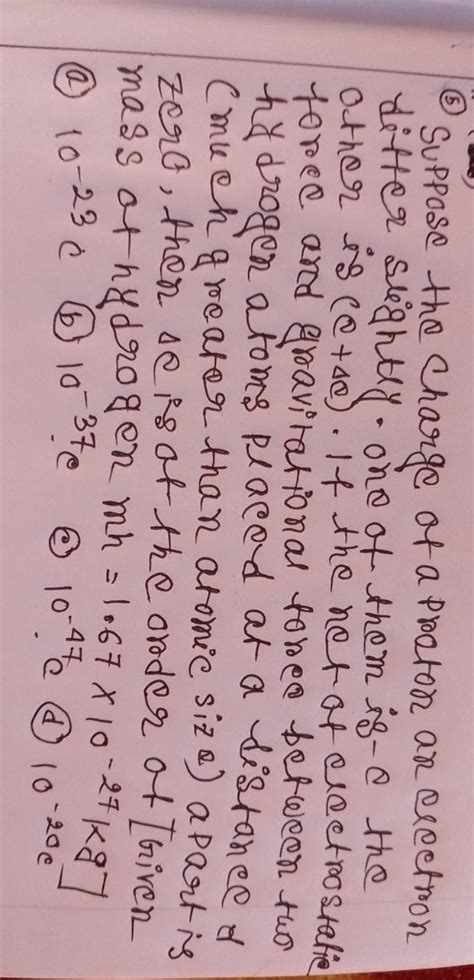 ⑤ Suppose the charge of a proton an electron
differ slightly. one of them is -e the
other is (e + Δe). If the net of electrostatic
force and gravitational force between two
hydrogen atoms placed at a distance d
(much greater than atomic size) apart is
zero, then Δe is of the order of [Given
mass of hydrogen mh = 1.67 × 10⁻²⁷ kg]
ⓐ 10⁻²³ c ⓑ 10⁻³⁷ c ⓒ 10⁻⁴⁷ c ⓓ 10⁻²⁰ c